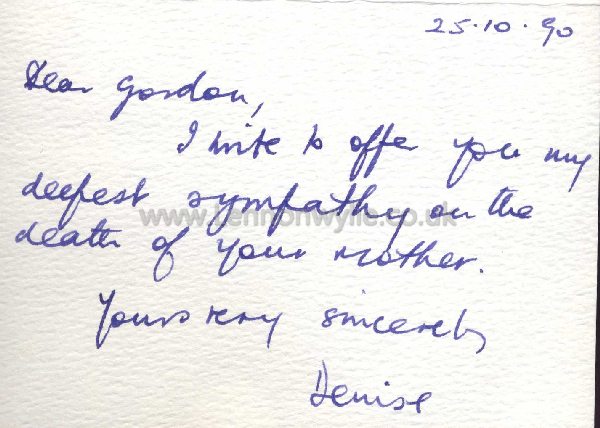 25.10.90
Dear Gordon,
I write to offer you my
deepest sympathy on the
www.lennonwylie.co.uk
death of your mother.
Yours very sincerely
Denise